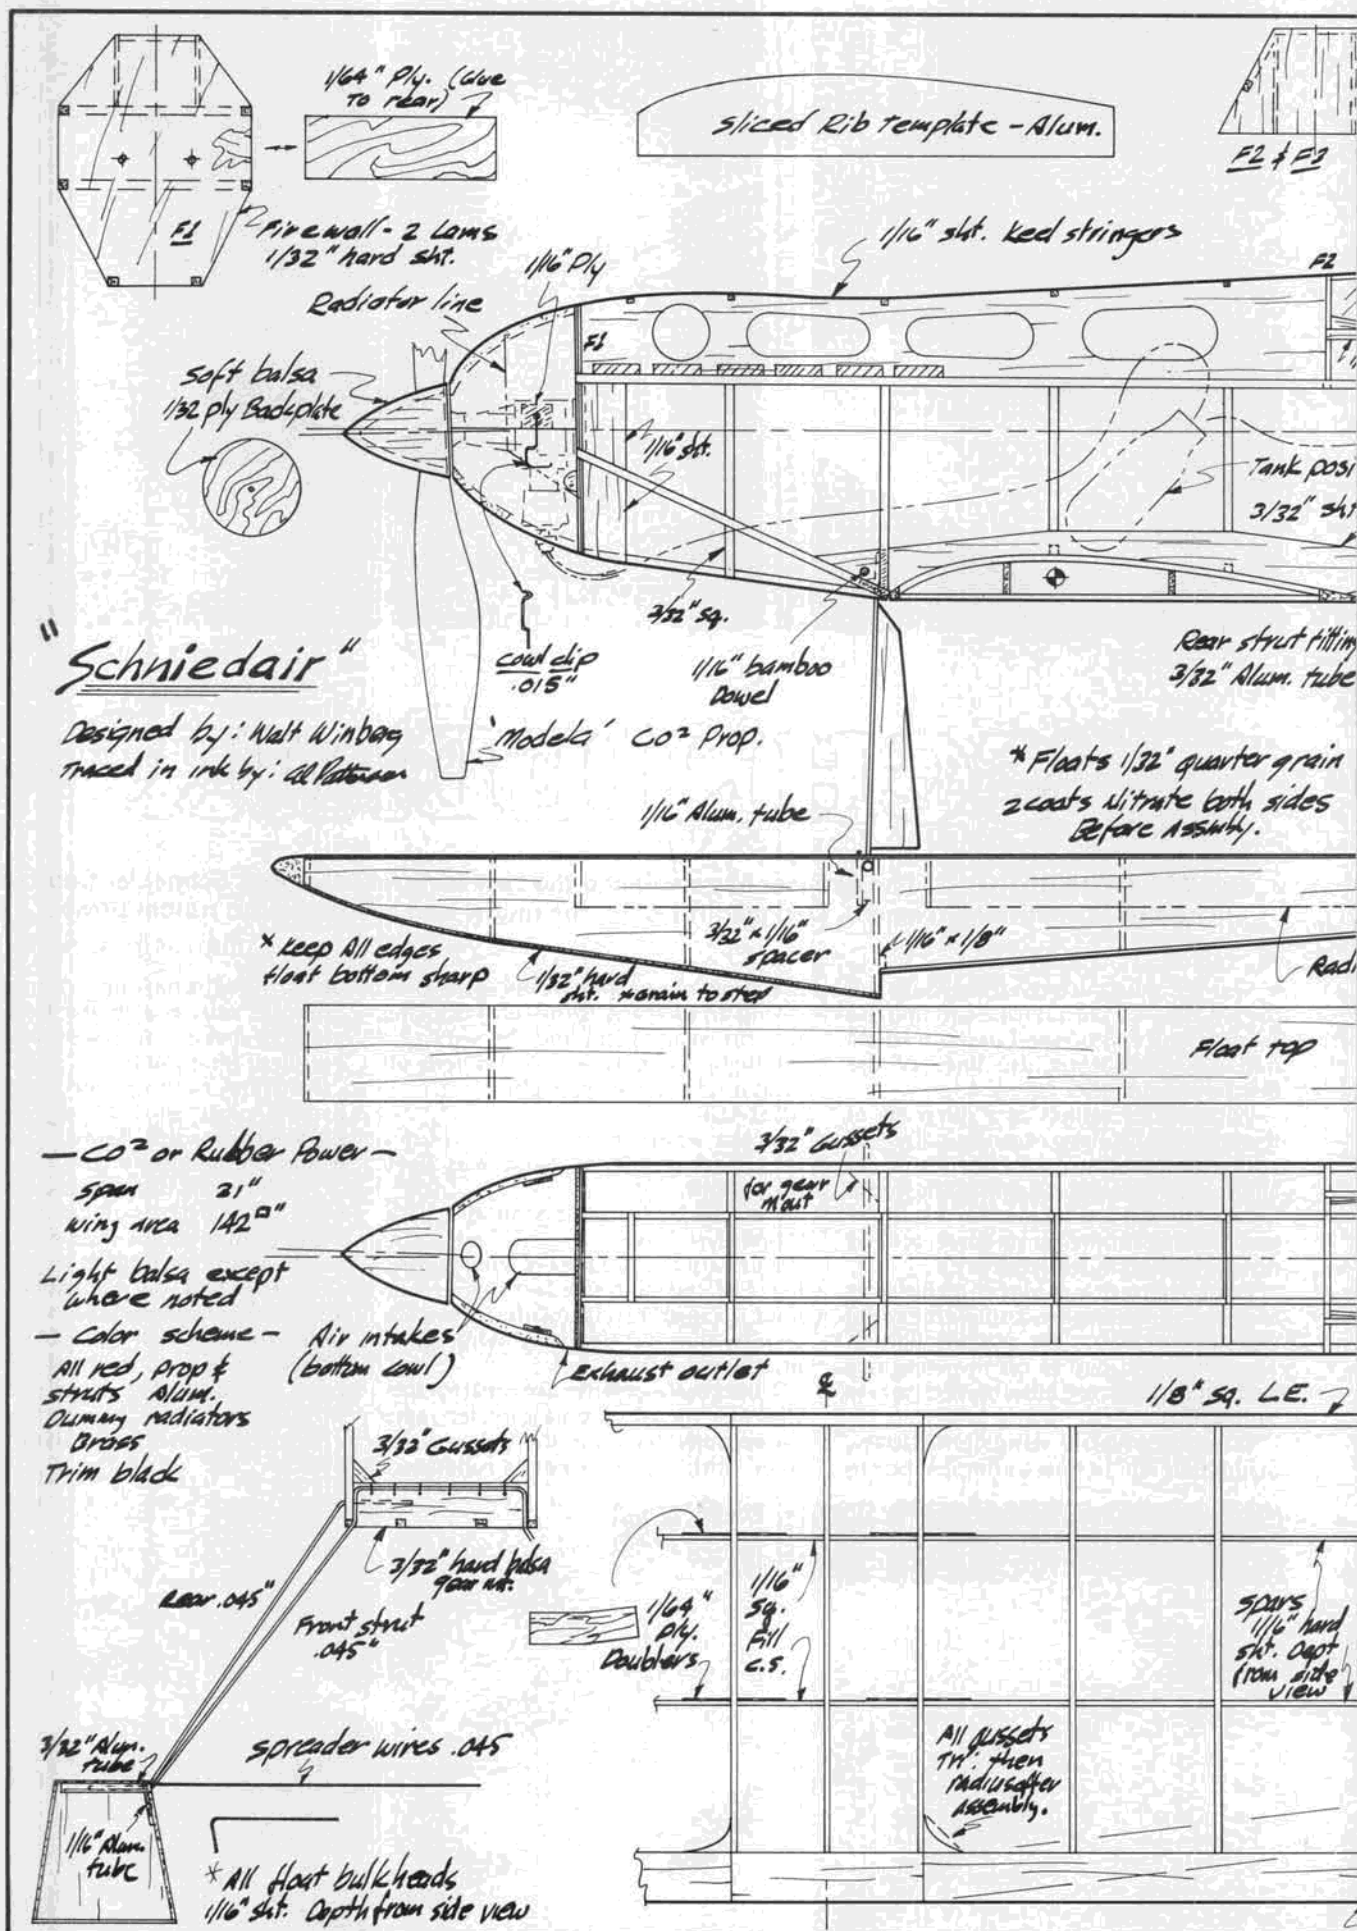 1/64" Ply. (Glue
To rear)
Sliced Rib Template - Alum.
F2 & F3
F1
Firewall - 2 Lams
1/32" hard sht.
1/16" sht. keel stringers
F2
1/16" Ply
Radiator line
F1
Soft balsa
1/32 ply Backplate
1/16" sht.
Tank posi
3/32" sht
3/32" sq.
"Schniedair"
cowl clip
.015"
1/16" bamboo
Dowel
Rear strut fitting
3/32" Alum. tube
Designed by: Walt Winberg
Traced in ink by: Al Patterson
'Modela' CO² Prop.
* Floats 1/32" quarter grain
2 coats Nitrate both sides
Before Assmbly.
1/16" Alum. tube
* Keep All edges
float bottom sharp
1/32" hard
sht. * grain to step
3/32" x 1/16"
spacer
1/16" x 1/8"
Radi
Float top
— CO² or Rubber Power —
span 31"
wing area 142 □"
Light balsa except
where noted
— Color scheme —
All red, prop &
struts Alum.
Dummy radiators
Brass
Trim black
3/32" Gussets
for gear
mout
Air intakes
(bottom cowl)
Exhaust outlet
℄
1/8" sq. L.E.
3/32" Gussets
3/32" hard balsa
gear mt.
Rear .045"
Front strut
.045"
1/64"
Ply.
Doublers
1/16"
Sq.
Fill
c.s.
spars
1/16" hard
sht. Dept
from side
view
3/32" Alum.
tube
spreader wires .045
All gussets
Tri. then
radius after
assembly.
1/16" Alum.
tube
* All float bulkheads
1/16" sht. Depth from side view